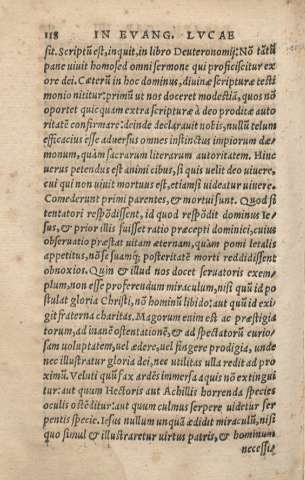 118 IN EVANG. LVCAE
sit. Scriptũ est, inquit, in libro Deuteronomij: Nõ tãtũ
pane uiuit homo sed omni sermone qui proficiscitur ex
ore dei. Cæterũ in hoc dominus, diuinæ scripturæ testi
monio nititur: primũ ut nos doceret modestiã, quos nõ
oportet quicquam extra scripturæ à deo proditæ auto
ritatẽ confirmare: deinde declarauit nobis, nullũ telum
efficacius esse aduersus omnes instinctus impiorum dæ-
monum, quàm sacrarum literarum autoritatem. Hinc
uerus petendus est animi cibus, si quis uelit deo uiuere,
cui qui non uiuit mortuus est, etiamsi uideatur uiuere.
Comederunt primi parentes, & mortui sunt. Quod si
tentatori respõdissent, id quod respõdit dominus Ie-
sus, & prior illis fuisset ratio præcepti dominici, cuius
obseruatio præstat uitam æternam, quàm pomi letalis
appetitus, nõ se suamq; posteritatẽ morti reddidissent
obnoxios. Quin & illud nos docet seruatoris exem-
plum, non esse proferendum miraculum, nisi quũ id po
stulat gloria Christi, nõ hominũ libido: aut quũ id exi-
git fraterna charitas. Magorum enim est ac præstigia
torum, ad inanẽ ostentationẽ, & ad spectatorũ curio-
sam uoluptatem, uel ædere, uel fingere prodigia, unde
nec illustratur gloria dei, nec utilitas ulla redit ad pro
ximũ. Veluti quũ fax ardẽs immersa aquis nõ extingui
tur: aut quum Hectoris aut Achillis horrenda species
oculis ostẽditur: aut quum culmus serpere uidetur ser
pentis specie. Iesus nullum unquã ædidit miraculũ, nisi
quo simul & illustraretur uirtus patris, & hominum
necessi-